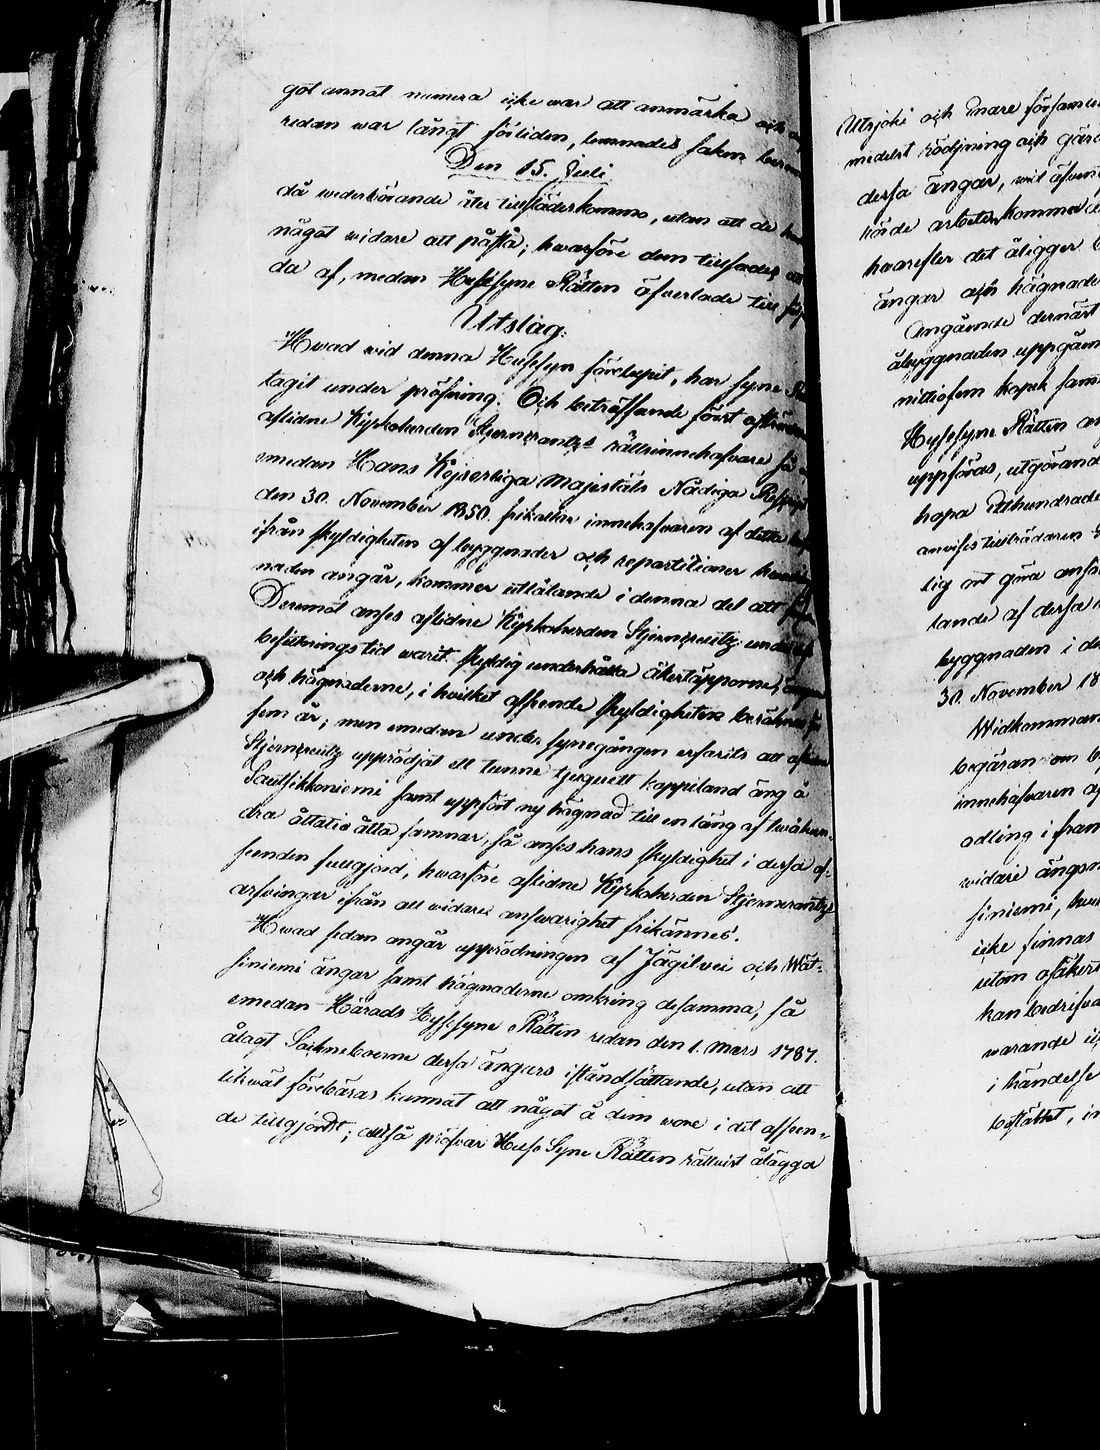 göt annat numera icke war att anmärka och
redan war långt förliden, lemnades saken
Den 15. Juli
då wederbörande åter tillstädeskommo, utan att de
något widare att påstå; hwarföre dem tillsades att
da af, medan Husesyne Rätten öfwerlade till
Utslag:
Hwad wid denna Husesyn förelupit, har Syne
tagit under pröfning. Och beträffande först
aflidne Kyrkoherden Stjerncreutz's rättsinnehafware så
emedan Hans Kejserliga Majestäts Nådiga
den 30. November 1850. frikallar innehafwaren af detta
ifrån skyldigheten af byggnader och repartitioner
naden angår, kommer utlåtande i denna del att
Deremot anses aflidne Kyrkoherden Stjerncreutz under
besittningstid warit skyldig underhålla åkertäpporne, ängar
och hägnaderne, i hwilket afseende skyldigheten beräknas för
fem år; men emedan under synegången erfarits att aflidne
Stjerncreutz upprödjat ett tunne tjuguett kappland äng å
Sautsikkoniemi samt uppfört ny hägnad till en läng af twåhun-
dra åttatio åtta famnar, så anses hans skyldighet i dessa af-
seenden fullgjord, hwarföre aflidne Kyrkoherden Stjerncreutz
arfwingar ifrån all widare answarighet frikännes.
Hwad sedan angår upprödningen af Jägilwei och Wät-
siniemi ängar samt hägnaderne omkring desamma, så
emedan Härads Husesyne Rätten redan den 1. Mars 1787.
ålagt Sockneboerne dessa ängars iståndsättande, utan att
likwäl förebäras kunnat att något å dem wore i det afseen-
de tillgjordt; alltså pröfwar Huse Syne Rätten rättwist ålägga
Utsjoki och Enare församl
medelst rödjning och gär
dessa ängar, wid äfwen
hörde arbeten kommer
hwarefter det åligger
ängar och hägnade
Angående dernäst
åbyggnaden uppgåen
nittiofem kopek sam
Husesyne Rätten
uppföras, utgörand
hopa Etthundrade
anwises tillträdaren
lig att göra ansö
tande af dessa
byggnaden i de
30. November 18
Widkomman
begäran om
innehafwaren af
odling i fram
widare ängsm
siniemi,
icke finnas
utom osäkert
kan bedrifwa
warande
i händelse